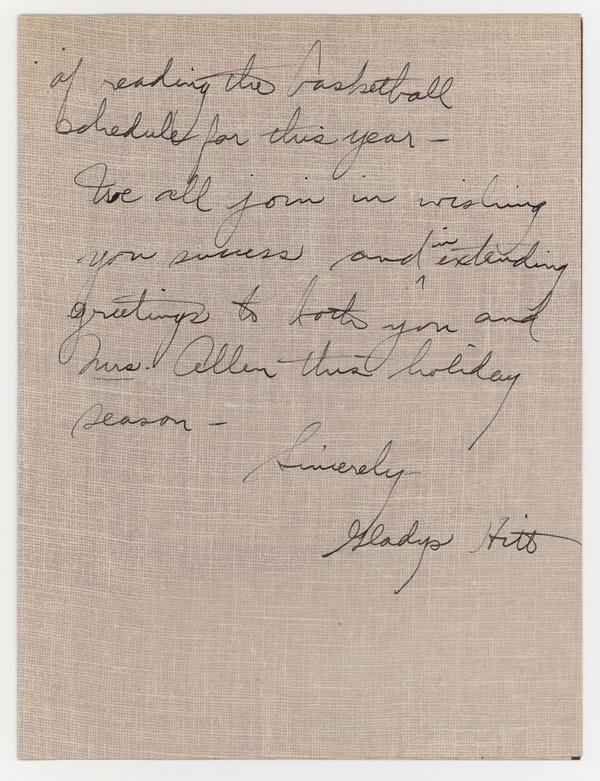 of reading the basketball
schedule for this year –
We all join in wishing
you success and ^in extending
greetings to both you and
Mrs. Allen this holiday
season –
Sincerely
Gladys Hitt